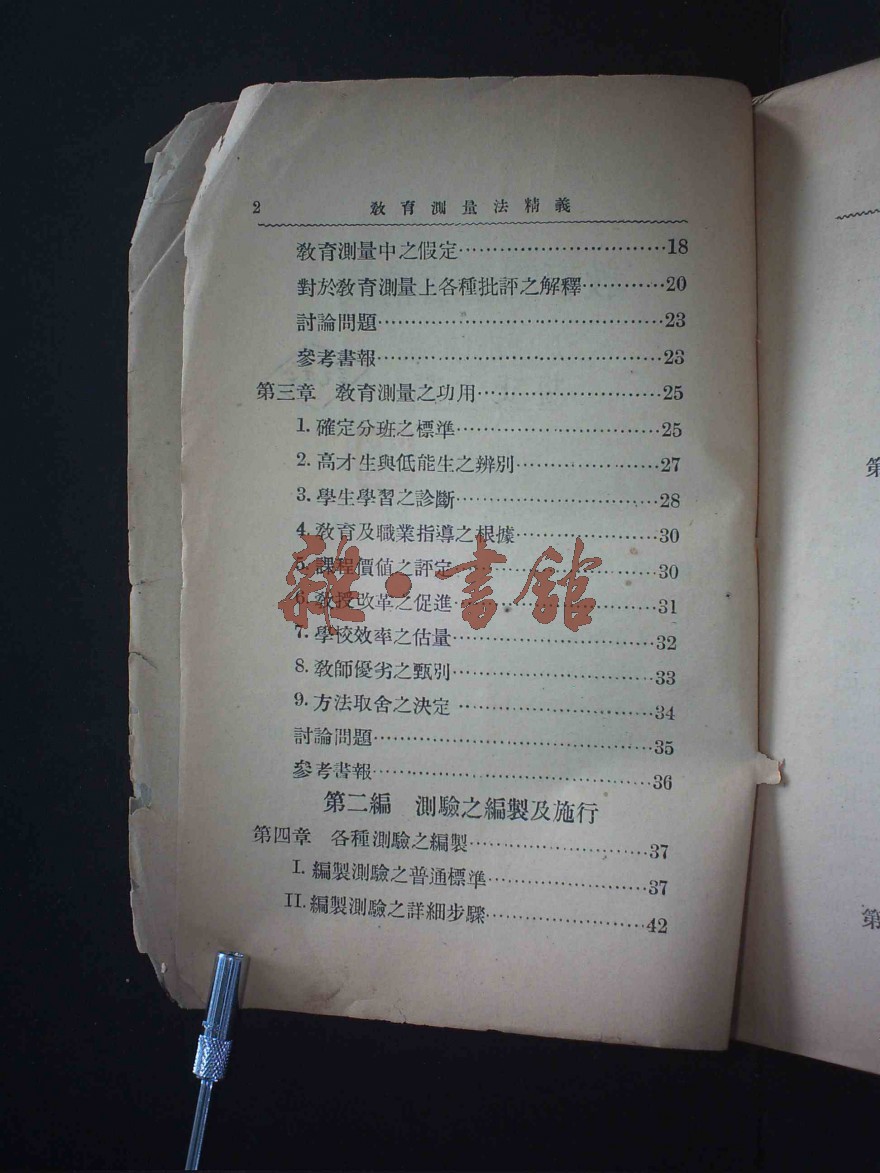 2 教育測量法精義
教育測量中之假定……………………………18
對於教育測量上各種批評之解釋…………20
討論問題………………………………………23
參考書報………………………………………23
第三章 教育測量之功用………………………25
1. 確定分班之標準……………………………25
2. 高才生與低能生之辨別……………………27
3. 學生學習之診斷……………………………28
4. 教育及職業指導之根據……………………30
5. 課程價值之評定……………………………30
6. 教授改革之促進……………………………31
7. 學校效率之估量……………………………32
8. 教師優劣之甄別……………………………33
9. 方法取舍之決定……………………………34
討論問題………………………………………35
參考書報………………………………………36
第二編 測驗之編製及施行
第四章 各種測驗之編製………………………37
I. 編製測驗之普通標準………………………37
II. 編製測驗之詳細步驟………………………42
雜·書館
第
第